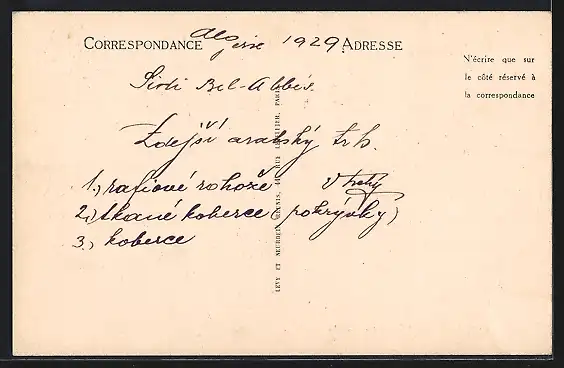 Algerie 1929.
CORRESPONDANCE ADRESSE
N'écrire que sur
le côté réservé à
la correspondance
Sidi Bel-Abbés.
Zdejší arabský trh.
1.) rafiové rohože
2.) tkané koberce (pokrývky)
3.) koberce
LEVY ET NEURDEIN RÉUNIS, 44, RUE LETELLIER, PARIS